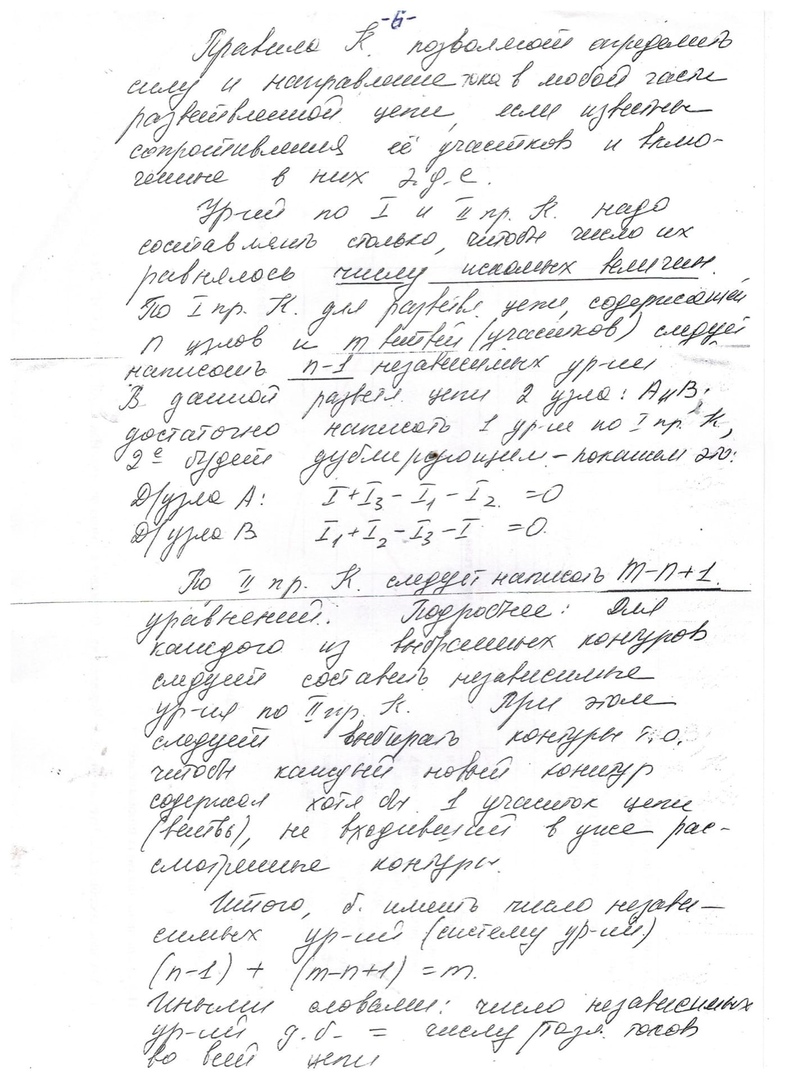 -6-
Правила К. позволяют определить
силу и направление тока в любой части
разветвленной цепи, если известны
сопротивления её участков и вклю-
ченные в них э.д.с.
Ур-ий по I и II пр. К. надо
составлять столько, чтобы число их
равнялось числу искомых величин.
По I пр. К. для разветвл. цепи, содержащей
n узлов и m ветвей (участков) следует
написать n-1 независимых ур-ий
В данной разветвл. цепи 2 узла: А и В;
достаточно написать 1 ур-ие по I пр. К,
2е будет дублирующим - покажем это:
Д/узла А: I + I3 - I1 - I2 = 0
Д/узла В I1 + I2 - I3 - I = 0.
По II пр. К. следует написать m-n+1
уравнений. Подробнее: Для
каждого из выбранных контуров
следует составить независимые
ур-ия по II пр. К. При этом
следует выбирать контуры т.о.
чтобы каждый новый контур
содержал хотя бы 1 участок цепи
(ветвь), не входивший в уже рас-
смотренные контуры.
Итого, б. иметь число незави-
симых ур-ий (систему ур-ий)
(n-1) + (m-n+1) = m.
Иными словами: число независимых
ур-ий д.б. = числу токов
во всей цепи